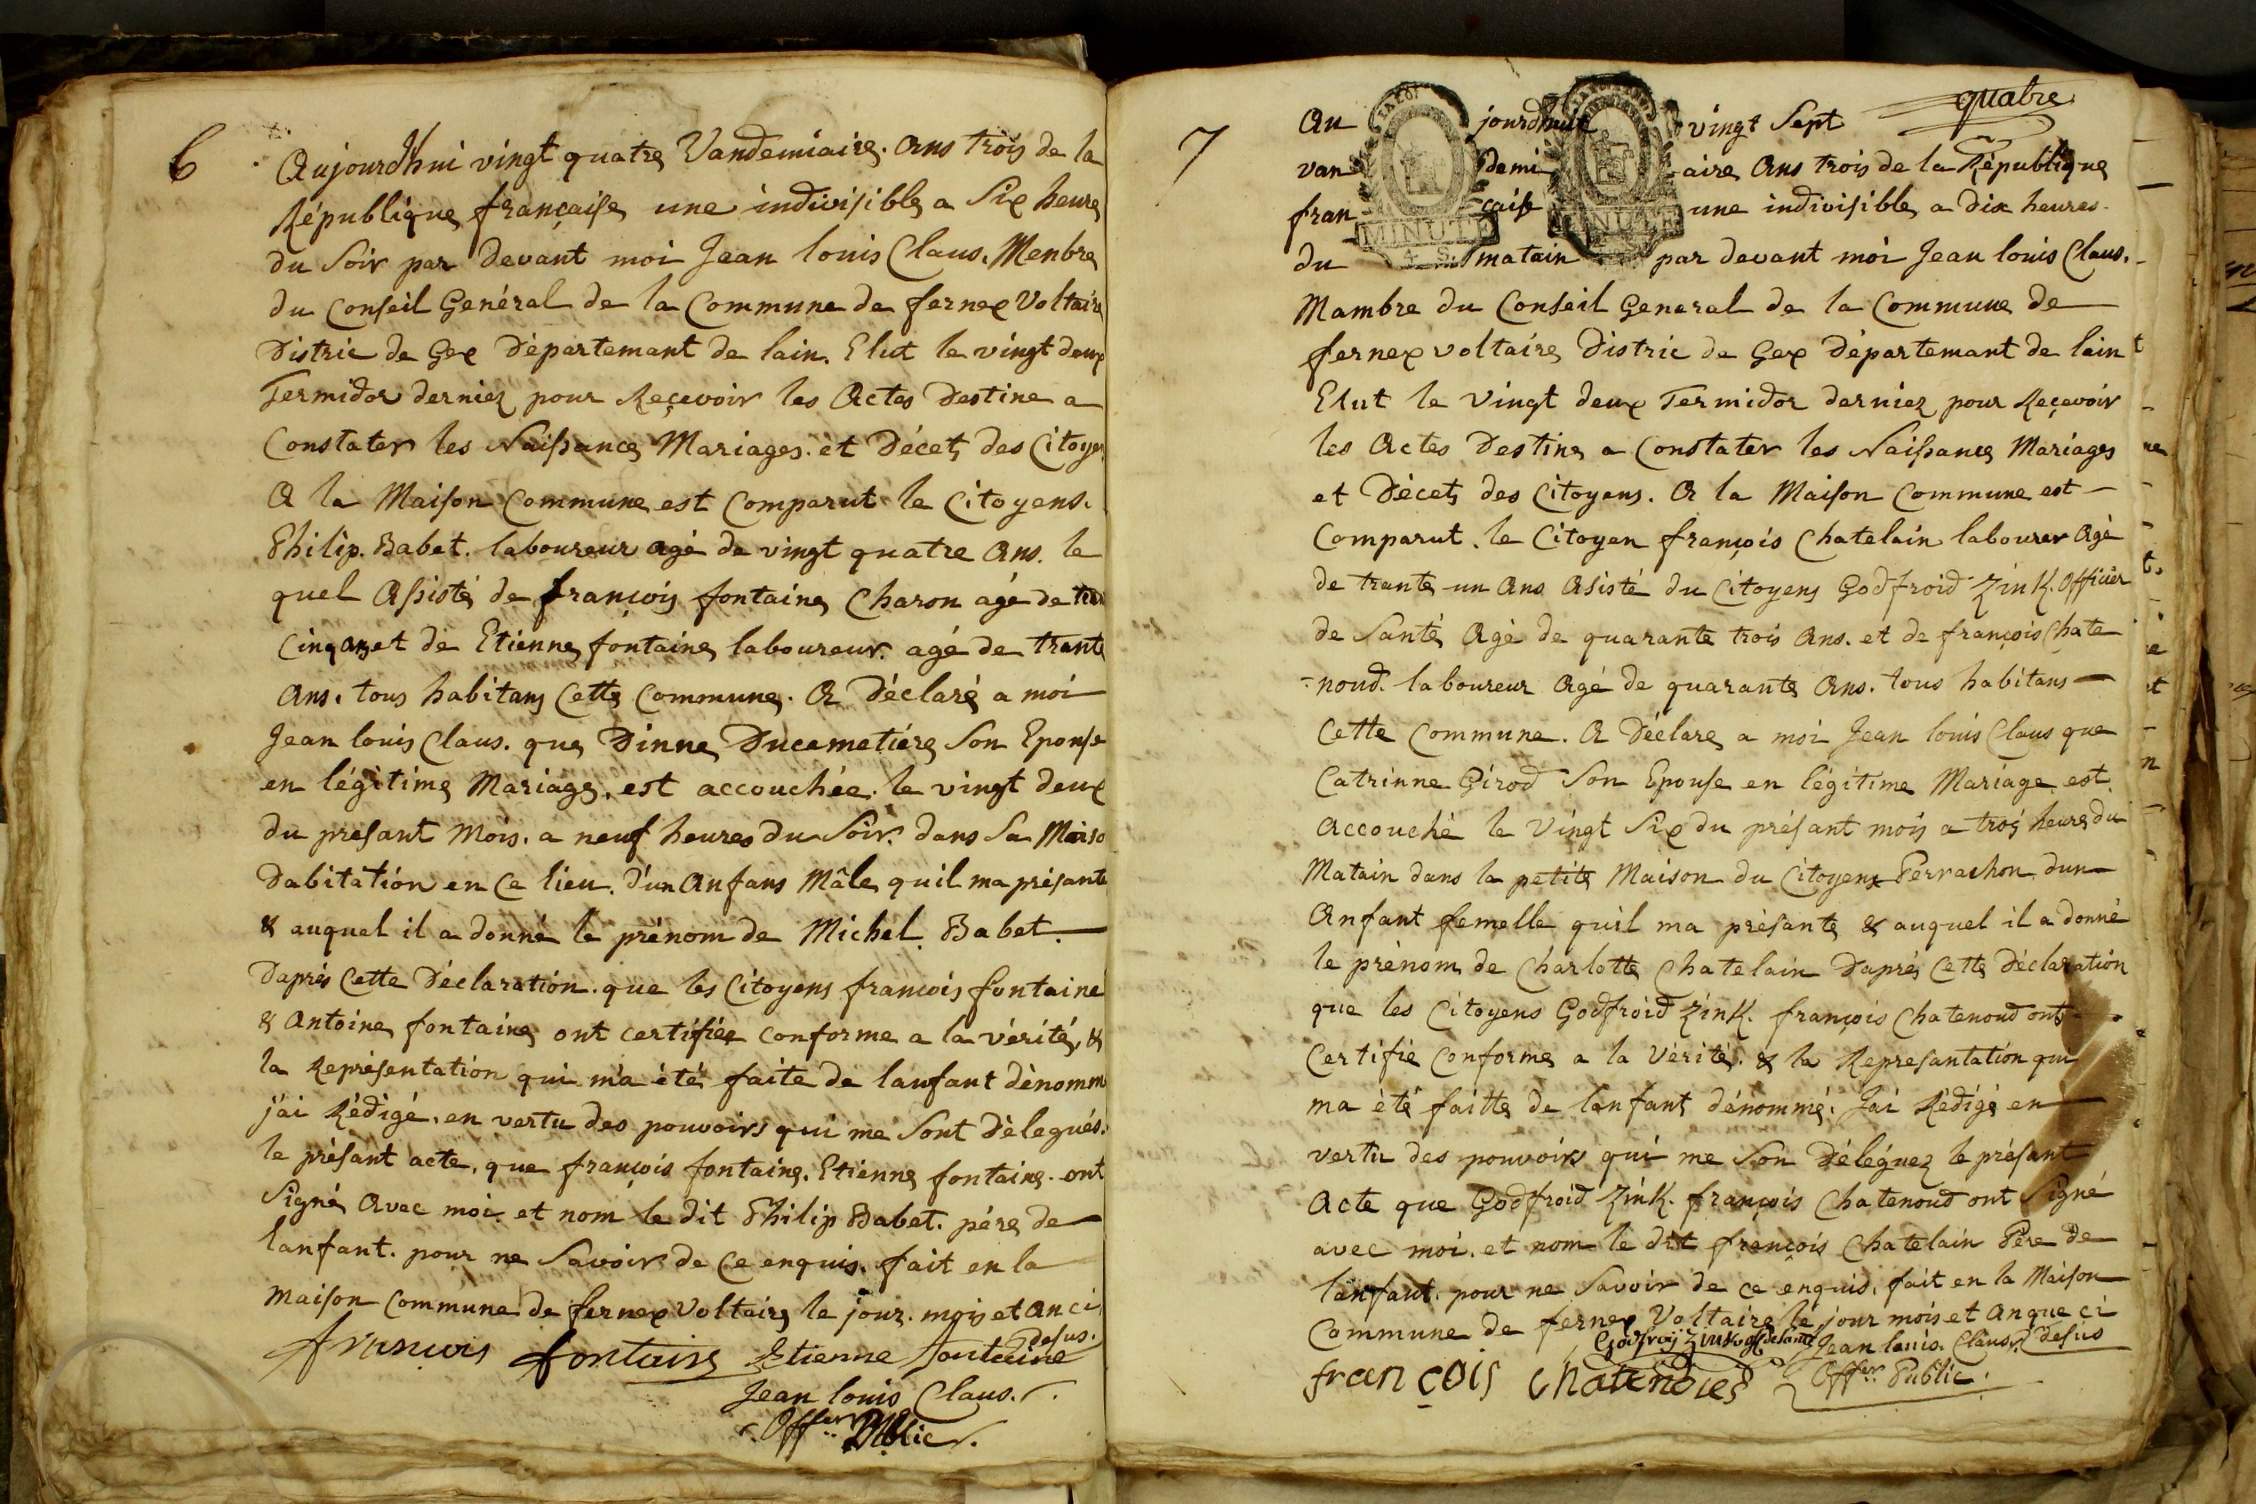 6
Aujourdhui vingt quatre Vandemiaire. Ans trois de la
République française une indivisible a Six heures
du Soir par devant moi Jean louis Claus. Menbre
du Conseil Genéral de la Commune de fernex Voltaire
District de Gex Départemant de lain. Elut le vingt deux
Termidor derniez pour Reçevoir les Actes Destine a
Constater les Naissance Mariages. et Décet des Citoyen
A la Maison Commune est Comparut le Citoyens.
Philip. Babet. laboureur agé de vingt quatre Ans. le
quel Assisté de françois fontaine Charon agé de
Cinq ans et de Etienne fontaine laboureur. agé de trante
Ans. tous habitans Cette Commune. A Déclaré a moi
Jean louis Claus. que Dinne Ducemetiére Son Epouse
en légitime Mariage. est accouchée. le vingt deux
du presant Mois. a neuf heures du Soir. dans Sa Maiso
Dabitation en Ce lieu. d'un Anfans Mâle quil ma présante
& auquel il a donné le prénom de Michel. Babet.
Daprés Cette Déclaration. que les Citoyens francois fontaine
& Antoine fontaine ont certifiée conforme a la vérité, &
la Représentation qui m'a été faite de lanfant dénomm
j'ai Rédigé. en vertu des pouvoirs qui me Sont délegués.
le présant acte, que françois fontaine. Etienne fontaine. ont
Signé Avec moi et nom le dit Philip Babet. pére de
lanfant. pour ne Savoir de Ce enquis. fait en la
Maison Commune de fernex Voltaire le jour. mois et An ci
desus.
francois fontaine Etienne fontaine
Jean louis Claus.
Offer Public.
quatre
7
Au jourdhuit vingt Sept
van demi aire Ans trois de la République
fran caise une indivisible a Dix heures.
du matain par devant moi Jean louis Claus.
MINUTE
MINUTE
4 S.
Mambre du Conseil General de la Commune de
fernex voltaire District de Gex Départemant de lain
Elut le Vingt deux Termidor derniez pour Reçevoir
les Actes Destine a Constater les Naissance Mariages
et Décet des Citoyens. A la Maison Commune est
Comparut. le Citoyen françois Chatelain labourer Agé
de trante un Ans Asisté du Citoyens Godfroid Zink. Officier
de Santé Agé de quarante trois Ans. et de françois Chate
-noud. laboureur Agé de quarante Ans. tous habitans
Cette Commune. A Déclare a moi Jean louis Claus que
Catrinne Girod Son Epouse en légitime Mariage est.
Accouché le Vingt Six du présant mois a trois heures du
Matain dans la petite Maison du Citoyens Perrachon dun
Anfant femelle quil ma présante & auquel il a donné
le prénom de Charlotte Chatelain Daprés Cette Déclaration
que les Citoyens Godfroid Zink. françois Chatenoud ont
Certifié Conforme a la Vérité. & la Represantation qui
ma été faitte de lanfant dénommé. Jai Rédigé en
vertu des pouvoirs qui me Son Déléguez le présant
Acte que Godfroid Zink. françois Chatenoud ont Signé
avec moi. et nom le dit françois Chatelain Pére de
lanfant. pour ne Savoir de ce enquis. fait en la Maison
Commune de fernex Voltaire le jour mois et An que ci
desus
Godfroy Zink of. de santé Jean louis. Claus.
françois chatenoud Offer. Public.